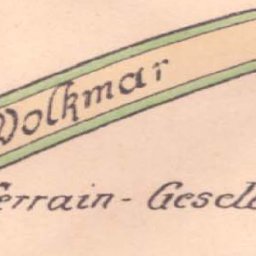 Volkmar
Terrain - Gesell